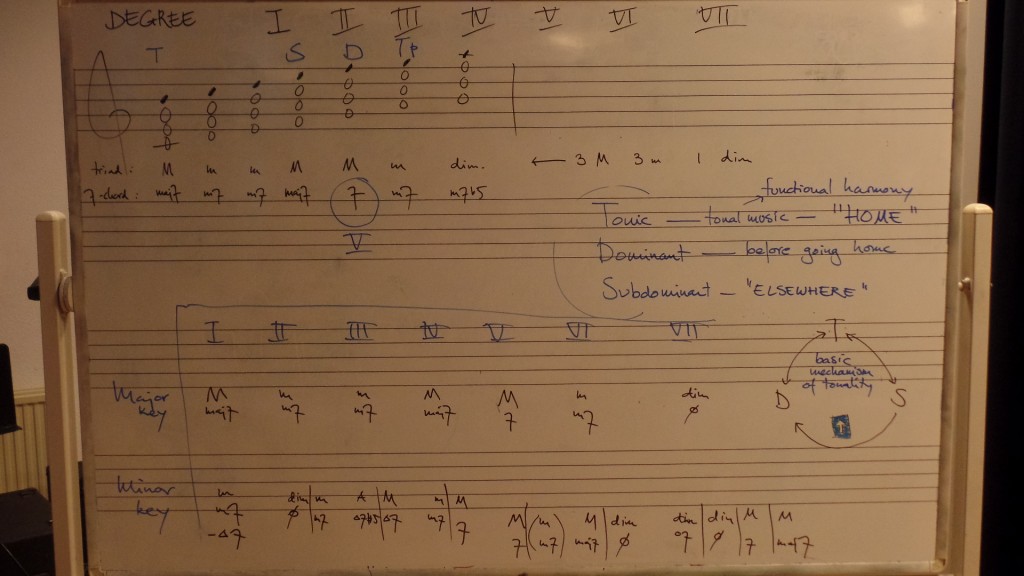 DEGREE I II III IV V VI VII
T S D Tp
triad: M m m M M m dim. ← 3 M 3 m 1 dim
7-chord: maj7 m7 m7 maj7 7 m7 m7b5
V
functional harmony
Tonic — tonal music — "HOME"
Dominant — before going home
Subdominant — "ELSEWHERE"
I II III IV V VI VII
T
basic
mechanism
of tonality
D S
Major key M m m M M m dim
maj7 m7 m7 maj7 7 m7 ø
Minor key m dim | m A | M m | M M | ( m ) M | dim dim | dim | M | M
m7 ø | m7 Δ7b5 | Δ7 m7 | 7 7 | ( m7 ) maj7 | ø o7 | ø | 7 | maj7
-Δ7